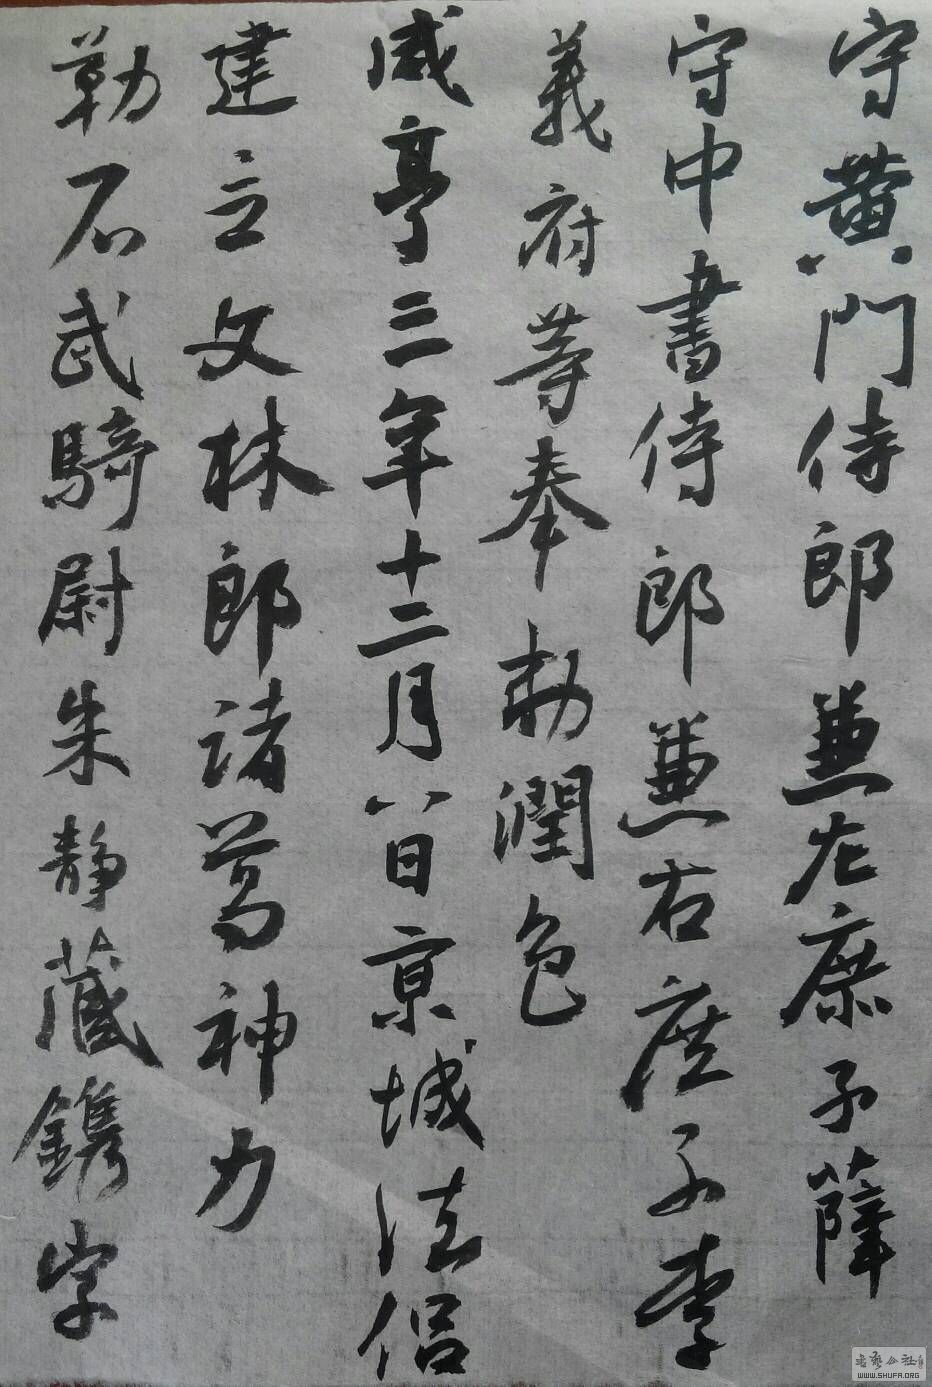 守黄門侍郎兼左庶子薛
守中書侍郎兼右庶子李
義府等奉勅潤色
咸亨三年十二月八日京城法侶
建立文林郎諸葛神力
勒石武騎尉朱靜藏鐫字
书艺公社
WWW.SHUFA.ORG